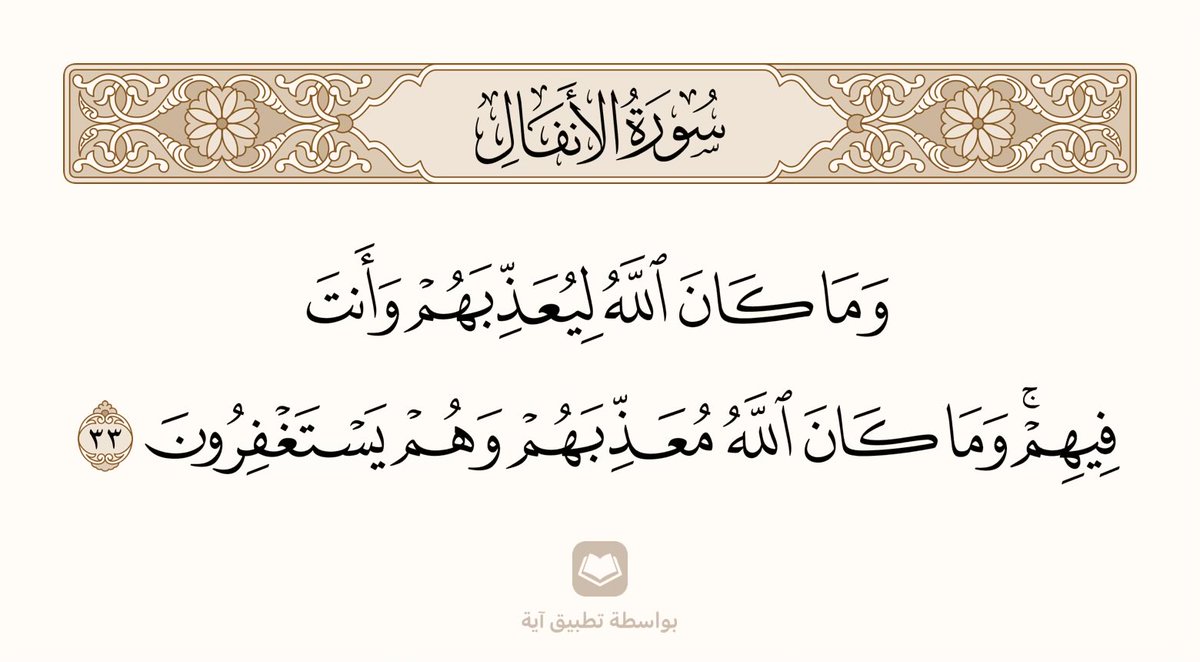 سُورَةُ الأَنفَالِ
وَمَا كَانَ ٱللَّهُ لِيُعَذِّبَهُمۡ وَأَنتَ
فِيهِمۡۚ وَمَا كَانَ ٱللَّهُ مُعَذِّبَهُمۡ وَهُمۡ يَسۡتَغۡفِرُونَ ٣٣
بواسطة تطبيق آية